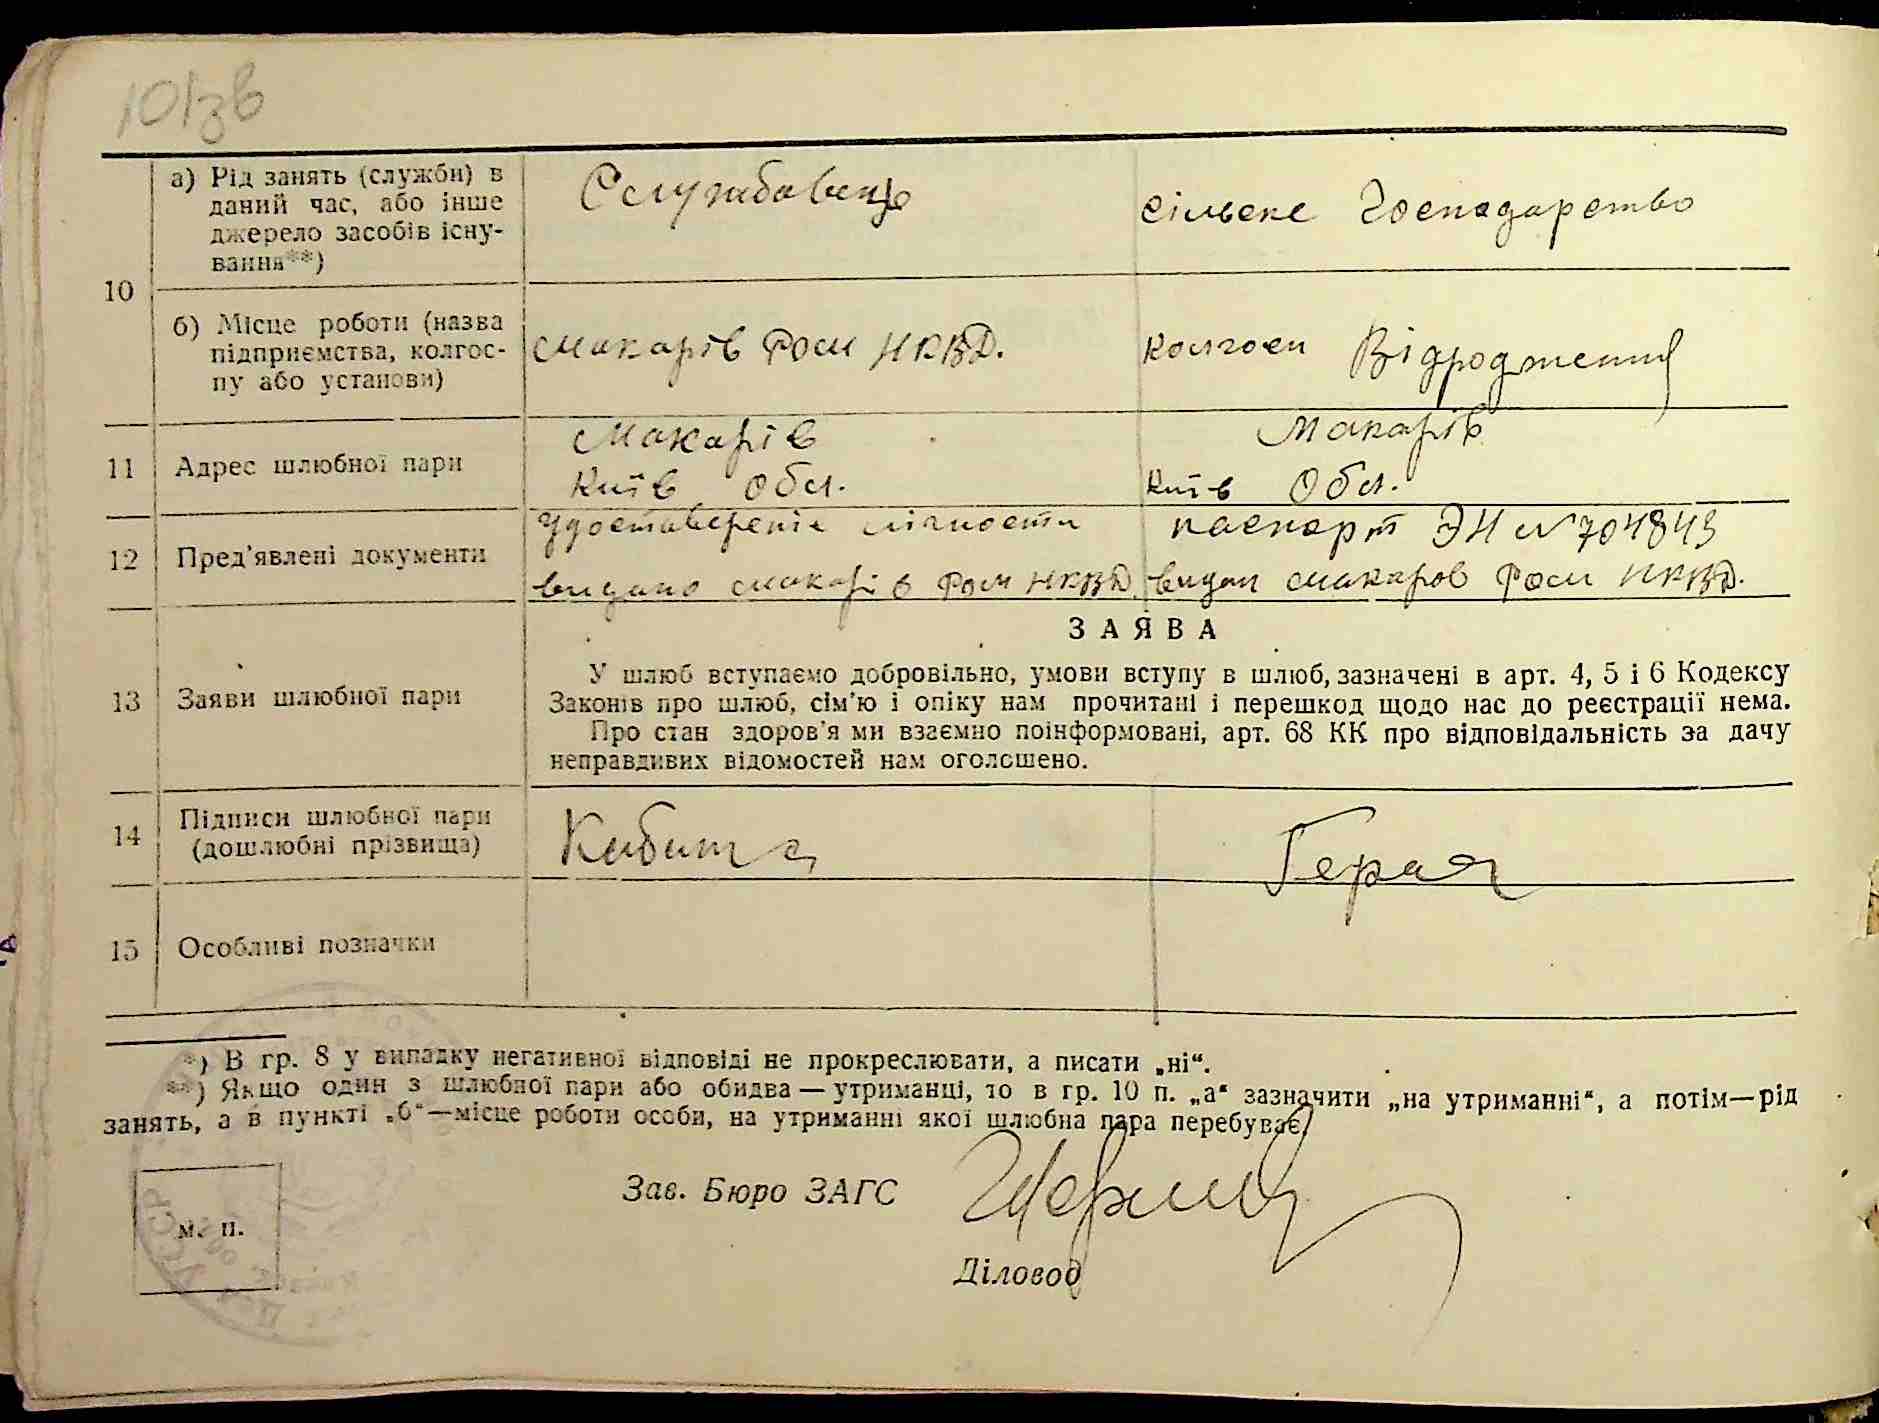 101зв
а) Рід занять (служби) в
даний час, або інше
джерело засобів існу-
вання**)
Службовець
сільске Господарство
10
б) Місце роботи (назва
підприємства, колгос-
пу або установи)
Макарів Ром НКВД.
колгосп Відродження
11
Адрес шлюбної пари
Макарів
Київ Обл.
Макарів
Київ Обл.
12
Пред'явлені документи
удоставереніє лічности
видано Макарів Ром НКВД.
паспорт ЭН № 704849
видан Макаров Ром НКВД.
13
Заяви шлюбної пари
ЗАЯВА
У шлюб вступаємо добровільно, умови вступу в шлюб, зазначені в арт. 4, 5 і 6 Кодексу
Законів про шлюб, сім'ю і опіку нам прочитані і перешкод щодо нас до реєстрації нема.
Про стан здоров'я ми взаємно поінформовані, арт. 68 КК про відповідальність за дачу
неправдивих відомостей нам оголошено.
14
Підписи шлюбної пари
(дошлюбні прізвища)
15
Особливі позначки
*) В гр. 8 у випадку негативної відповіді не прокреслювати, а писати „ні“.
**) Якщо один з шлюбної пари або обидва — утриманці, то в гр. 10 п. „а“ зазначити „на утриманні“, а потім—рід
занять, а в пункті „б“—місце роботи особи, на утриманні якої шлюбна пара перебуває.
Зав. Бюро ЗАГС
Діловод
м. п.
УССР